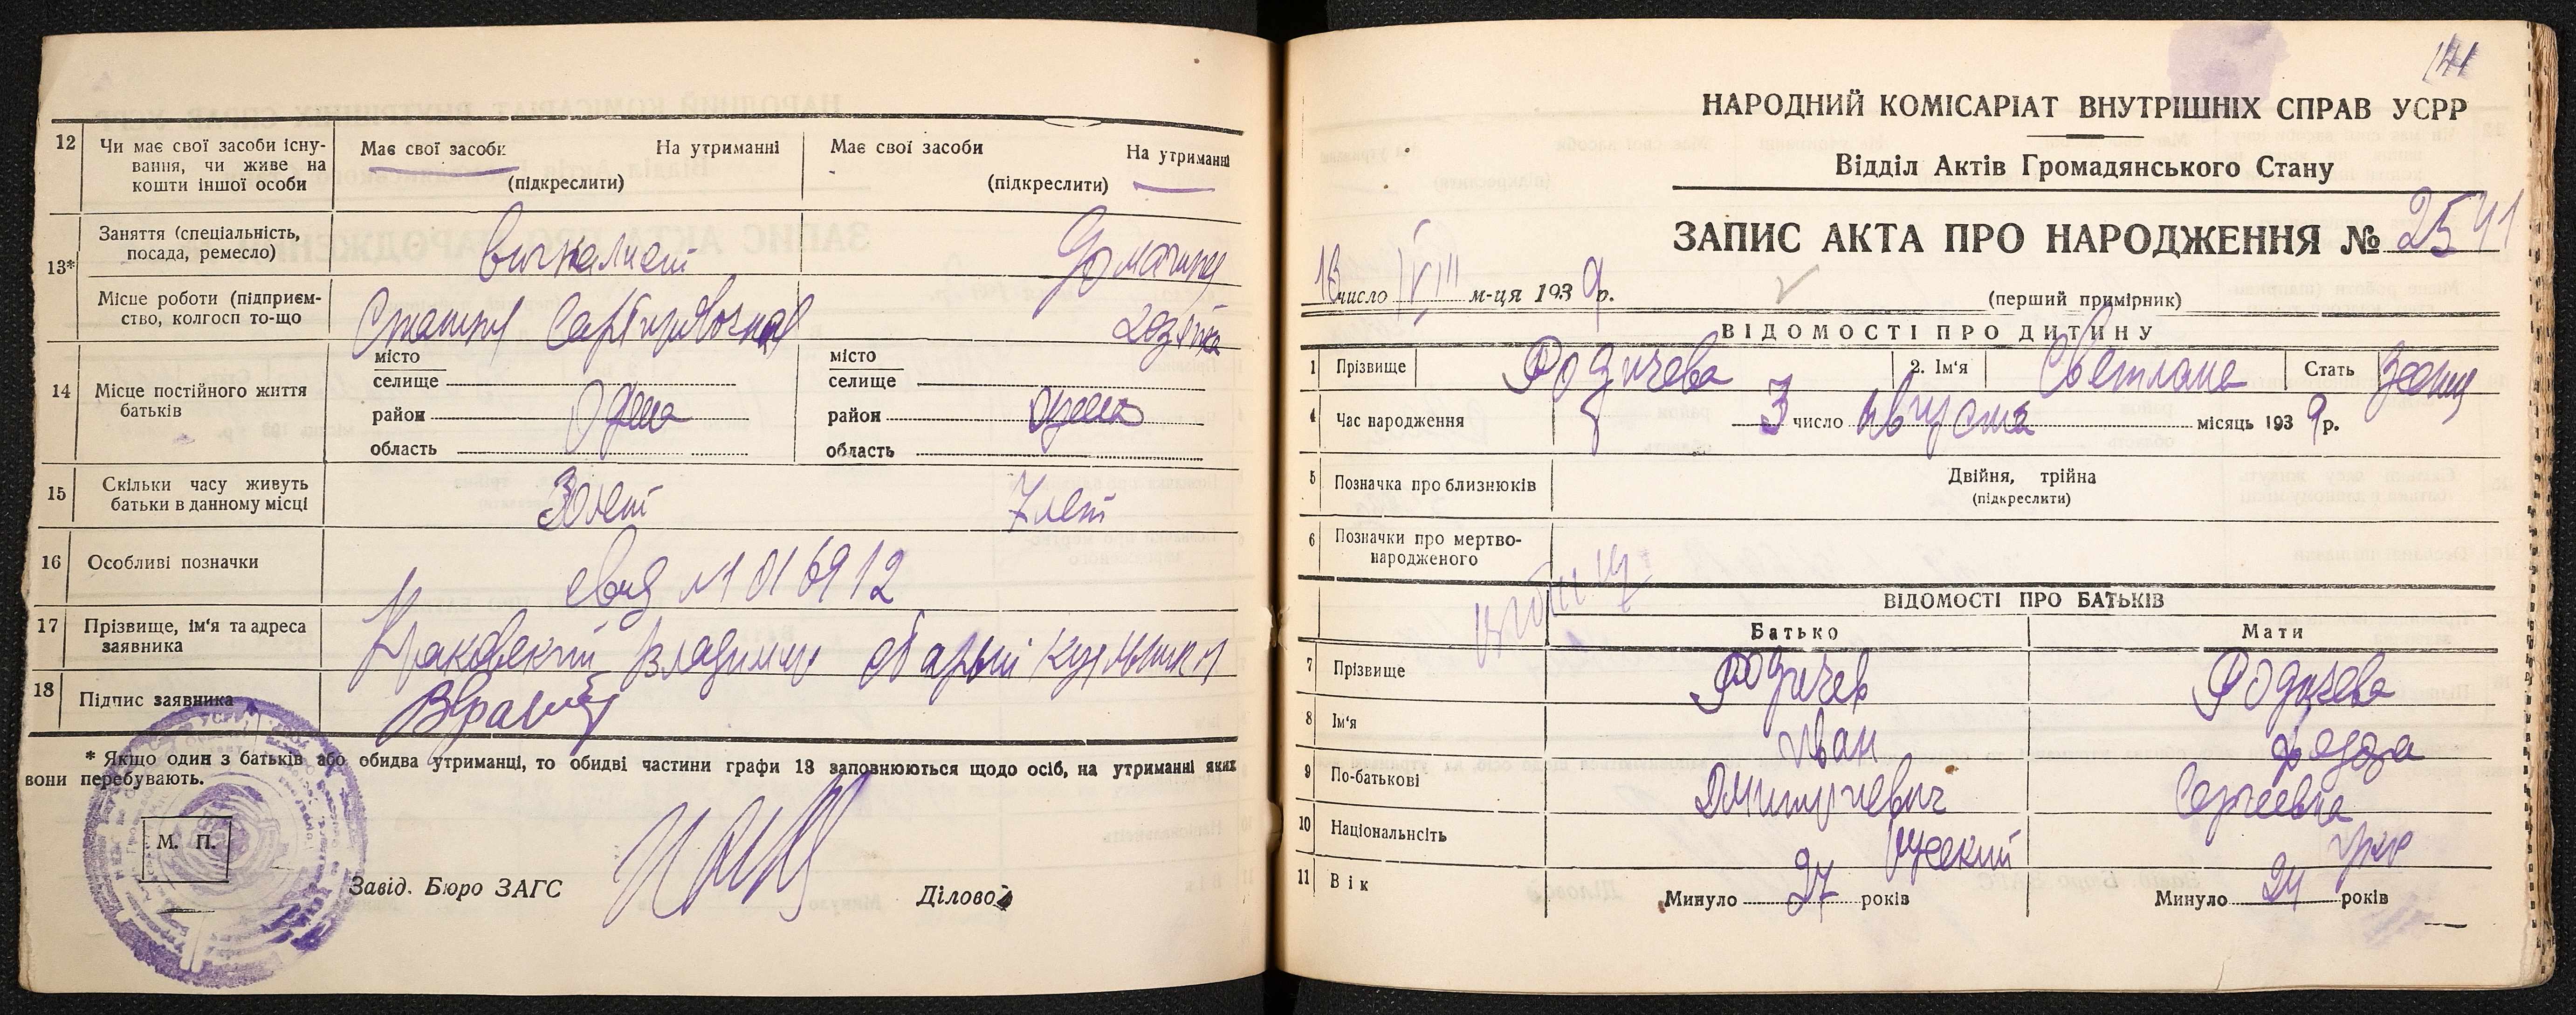 12 Чи має свої засоби існу-
вання, чи живе на
кошти іншої особи
Має свої засоби На утриманні
(підкреслити)
Має свої засоби На утриманні
(підкреслити)
13* Заняття (спеціальність,
посада, ремесло)
Домашняя
Місце роботи (підприєм-
ство, колгосп то-що
Станция Сортировочная
хозяйка
14 Місце постійного життя
батьків
місто
селище
район Одеса
область
місто
селище
район Одеса
область
15 Скільки часу живуть
батьки в данному місці
7 лет
16 Особливі позначки
свид №1016912
17 Прізвище, ім'я та адреса
заявника
Краковский Владимир
18 Підпис заявника
* Якщо один з батьків або обидва утриманці, то обидві частини графи 13 заповнюються щодо осіб, на утриманні яких
вони перебувають.
М. П.
Завід. Бюро ЗАГС
Діловод
141
НАРОДНИЙ КОМІСАРІАТ ВНУТРІШНІХ СПРАВ УСРР
Відділ Актів Громадянського Стану
ЗАПИС АКТА ПРО НАРОДЖЕННЯ № 2541
13 число VIII м-ця 1939 р.
(перший примірник)
ВІДОМОСТІ ПРО ДИТИНУ
1 Прізвище Родичева 2. Ім'я Светлана Стать женщ
4 Час народження 3 число августа місяць 1939 р.
5 Позначка про близнюків
Двійня, трійна
(підкреслити)
6 Позначки про мертво-
народженого
ВІДОМОСТІ ПРО БАТЬКІВ
Батько Мати
7 Прізвище Родичев Родичева
8 Ім'я Иван
9 По-батькові Дмитриевич Сергеевна
10 Національнсість русский укр
11 Вік Минуло 27 років Минуло 24 років